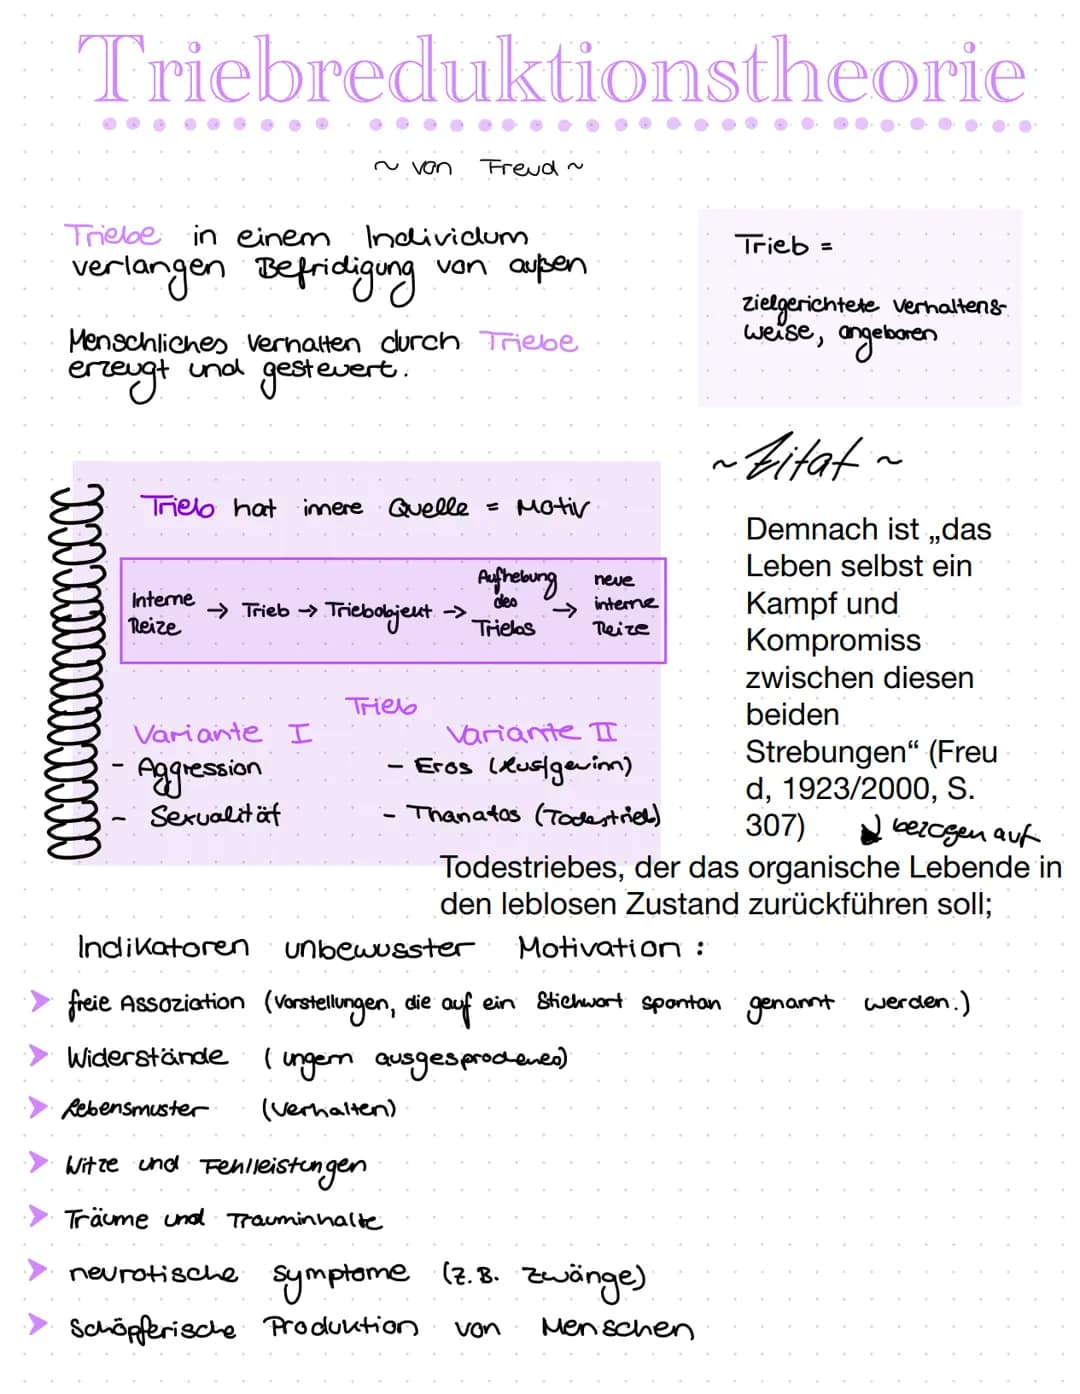 Triebreduktionstheorie
~ von Freud ~
Triebe in einem Individum
verlangen Befridigung von außen
Menschliches Verhalten durch Triebe
erzeugt und gesteuert.
Trieb =
zielgerichtete Verhaltens-
weise, angeboren
~ Zitat ~
Demnach ist „das
Leben selbst ein
Kampf und
Kompromiss
zwischen diesen
beiden
Strebungen“ (Freu
d, 1923/2000, S.
307)
bezogen auf
Todestriebes, der das organische Lebende in
den leblosen Zustand zurückführen soll;
Trieb hat innere Quelle = Motiv
Interne Reize → Trieb → Triebobjekt → Aufhebung des Triebs → neue interne Reize
Trieb
Variante I
- Aggression
- Sexualität
Variante II
- Eros (Lustgewinn)
- Thanatos (Todestrieb)
Indikatoren unbewusster Motivation :
➤ freie Assoziation (Vorstellungen, die auf ein Stichwort spontan genannt werden.)
➤ Widerstände (ungern ausgesprochenes)
➤ Lebensmuster (Verhalten)
➤ Witze und Fehlleistungen
➤ Träume und Trauminhalte
➤ neurotische Symptome (z.B. Zwänge)
➤ Schöpferische Produktion von Menschen